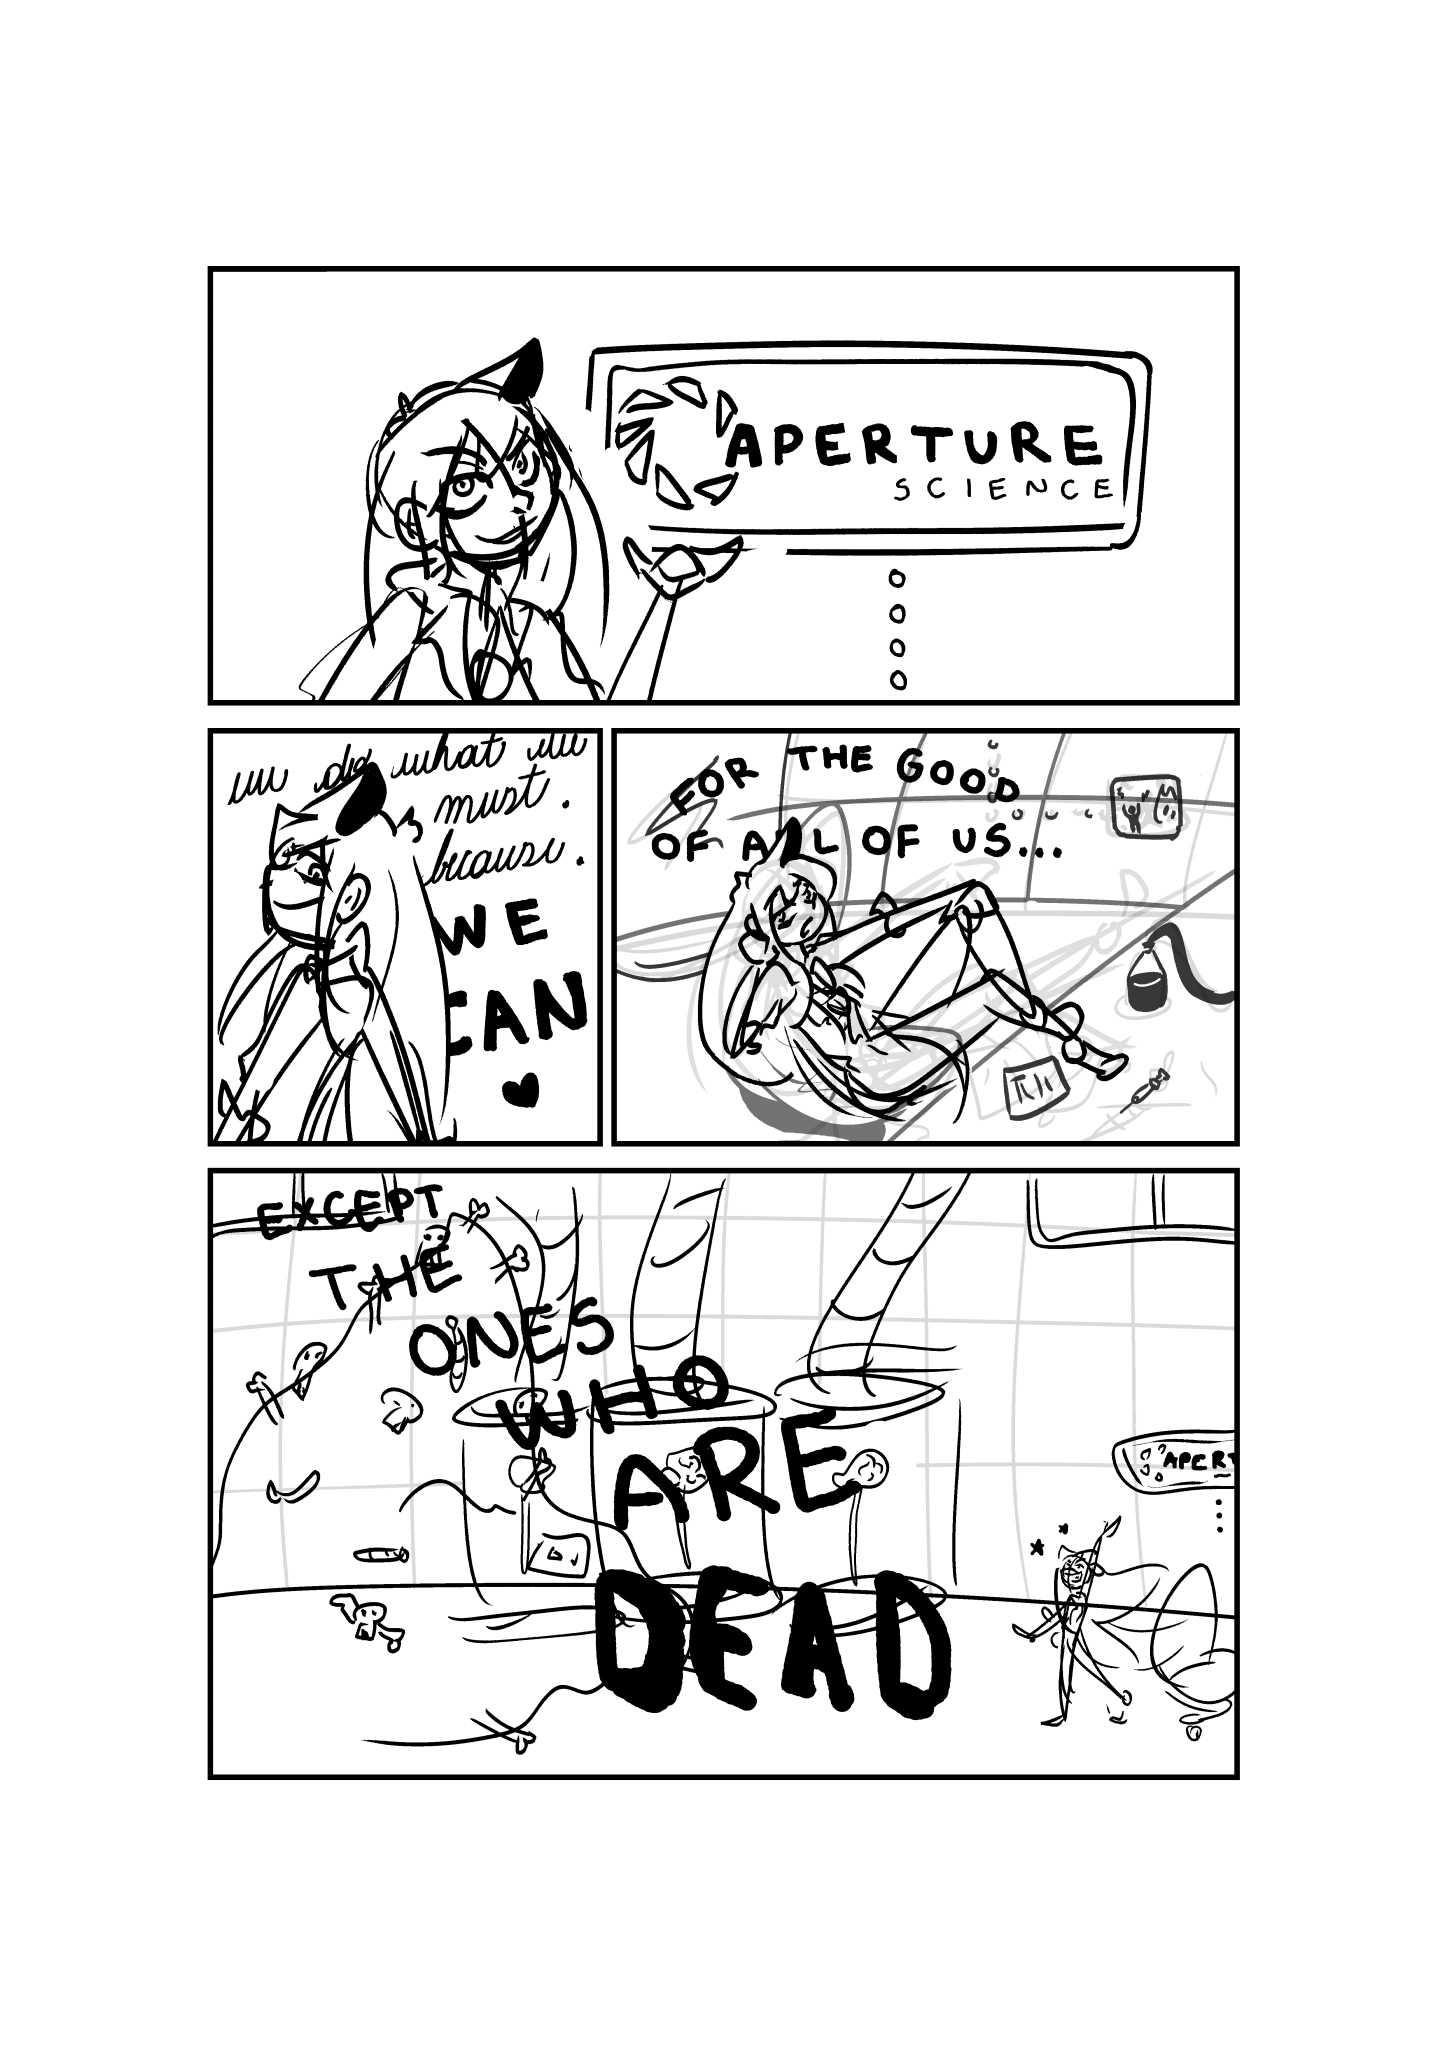 APERTURE
SCIENCE
we did what we
must.
because.
WE
CAN
FOR THE GOOD
OF ALL OF US...
EXCEPT
THE
ONES
WHO
ARE
DEAD
APERT